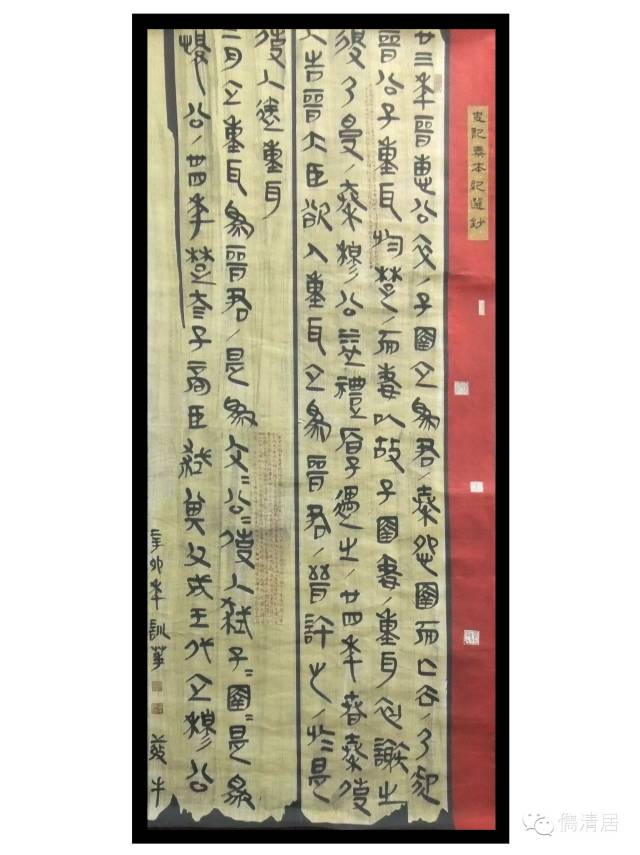 史記秦本紀選鈔
廿三年晉惠公卒子圉立為君秦怨圉而亡去乃迎
晉公子重耳於楚而妻以故子圉妻重耳初謝之
後乃受秦穆公益禮厚遇之廿四年春秦使
人告晉大臣欲入重耳立為晉君晉許之於是
使人送重耳
二月立重耳為晉君是為文=公=使人弒子=圉=是為
懷公卅四年楚太子商臣弒其父成王代立穆公
辛卯年
儁清居